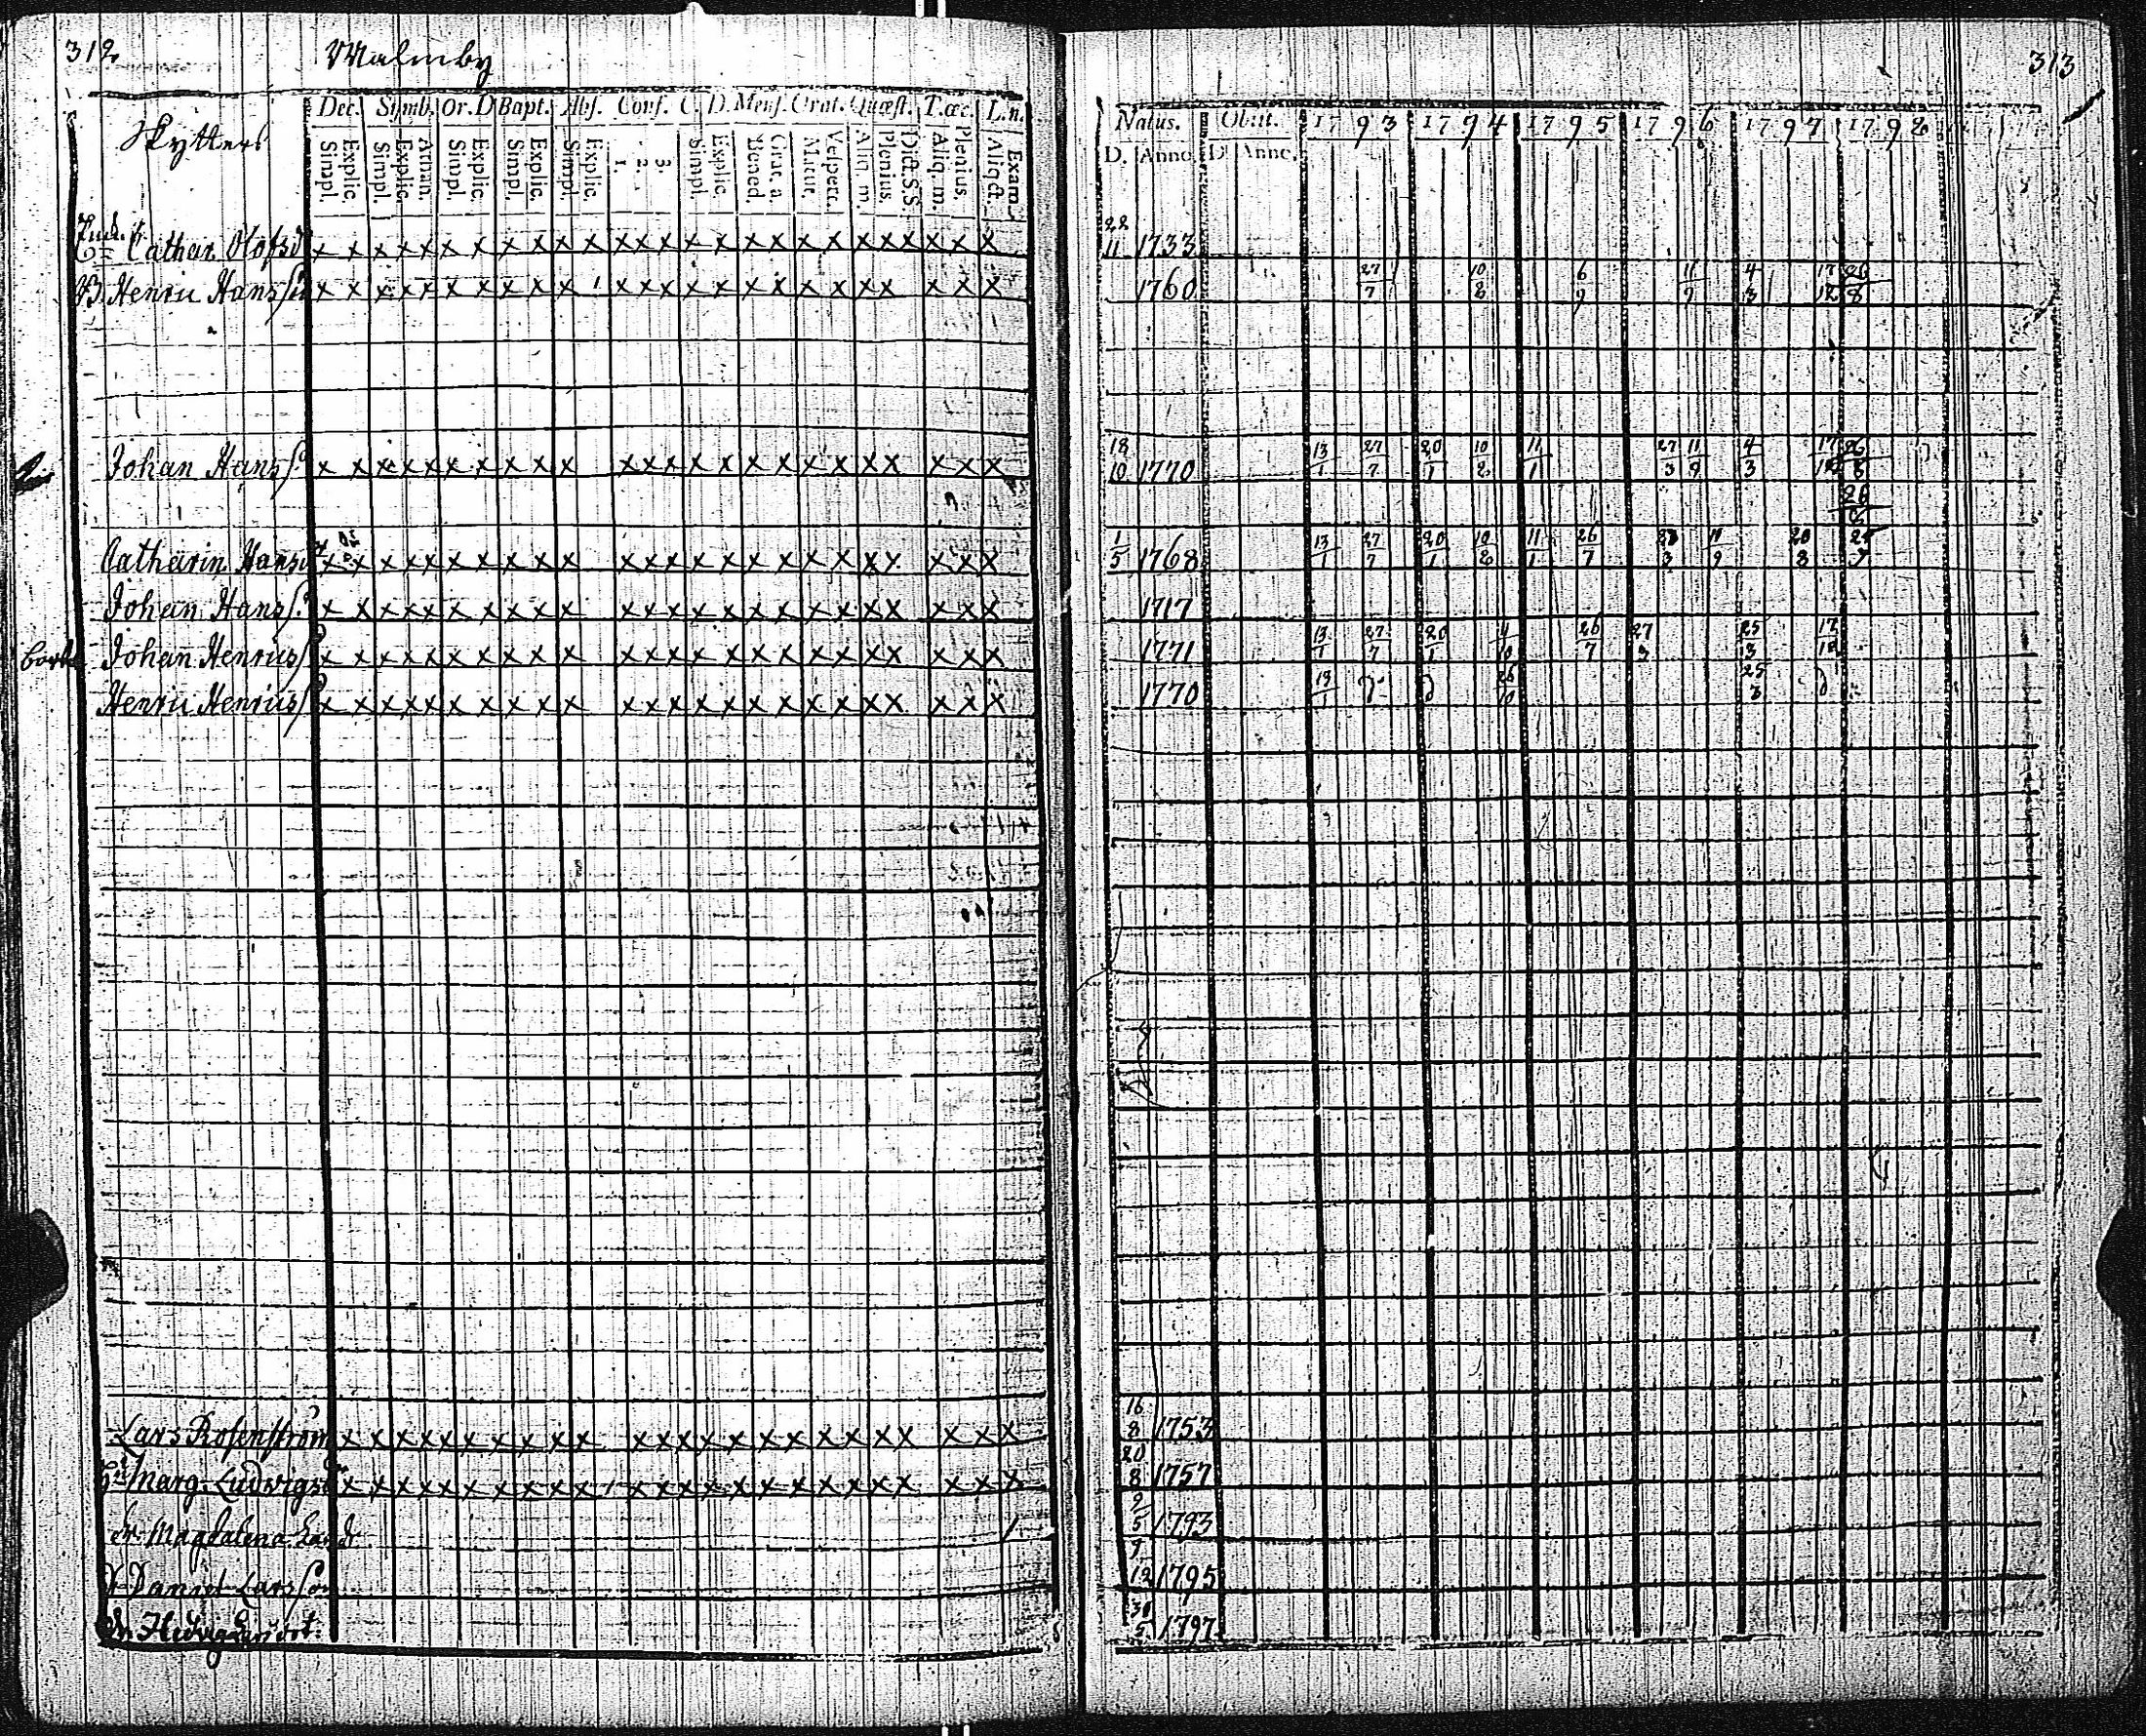 312
Malmby
313
Skytters
Dec. Symb. Or. D Bapt. Abs. Conf. C. D. Mens. Grat. Quæst. T. œc. L. n.
Simpl. Explic. Simpl. Explic. Athan. Simpl. Explic. Simpl. Explic. Simpl. Explic. 1. 2. 3. Simpl. Explic. Bened. Grat. a Matut. Vespert. Aliq. m. Plenius. Dict. S.S. Aliq. m. Plenius. Aliq. ſt. Exam.
Natus. Obiit. 1793 1794 1795 1796 1797 1798
D. Anno D Anno.
Cathar. Olofsd x x x x x x x x x x x x x x x x x x x x x x x x x x 22/11 1733
Henric Hansſ x x x x x x x x x x x x x x x x x x x x x x x x 1760 27/7 10/8 6/9 11/9 4/3 17/12 26/8
Johan Hansſ. x x x x x x x x x x x x x x x x x x x x x x x x 18/10 1770 13/1 27/7 20/1 10/8 11/1 27/3 11/9 4/3 17/12 26/8
26/8
Catharin Hansd x x x x x x x x x x x x x x x x x x x x x x x x 1/5 1768 13/1 27/7 20/1 10/8 11/1 26/7 11/9 20/8
Johan Hansſ. x x x x x x x x x x x x x x x x x x x x x x x x 1717
Johan Henricsſ x x x x x x x x x x x x x x x x x x x x x x x x 1771 13/1 27/7 20/1 26/7 27/3 25/3 17/12
Henric Henricsſ x x x x x x x x x x x x x x x x x x x x x x x x 1770 13/1 26/10 25/3
Lars Roſenſtröm x x x x x x x x x x x x x x x x x x x x x x x x 16/8 1753
Marg. Ludvigsd x x x x x x x x x x x x x x x x x x x x x x x x 20/8 1757
dr. Magdalena Larsd 9/5 1793
Daniel Larsſon 7/12 1795
dr. Hedvig 30/5 1797